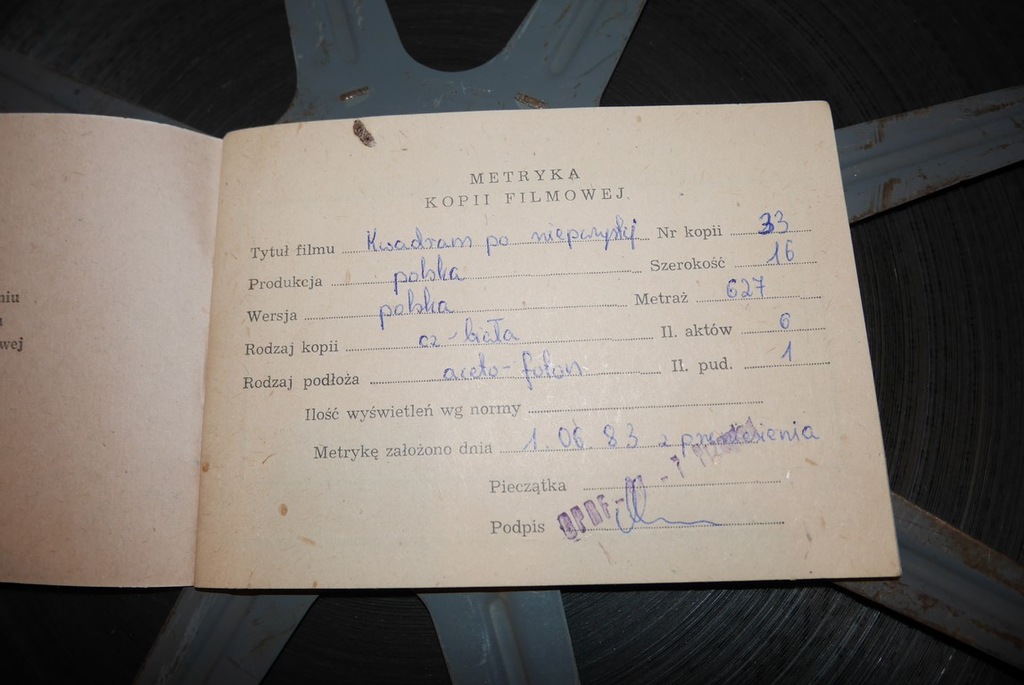 niu
wej
METRYKA
KOPII FILMOWEJ
Tytuł filmu Kwadrans po nieparzystej Nr kopii 33
Produkcja polska Szerokość 16
Wersja polska Metraż 627
Rodzaj kopii cz-biała Il. aktów 6
Rodzaj podłoża aceto-foton Il. pud. 1
Ilość wyświetleń wg normy
Metrykę założono dnia 1.06.83 z przeniesienia
Pieczątka
Podpis OPRF-